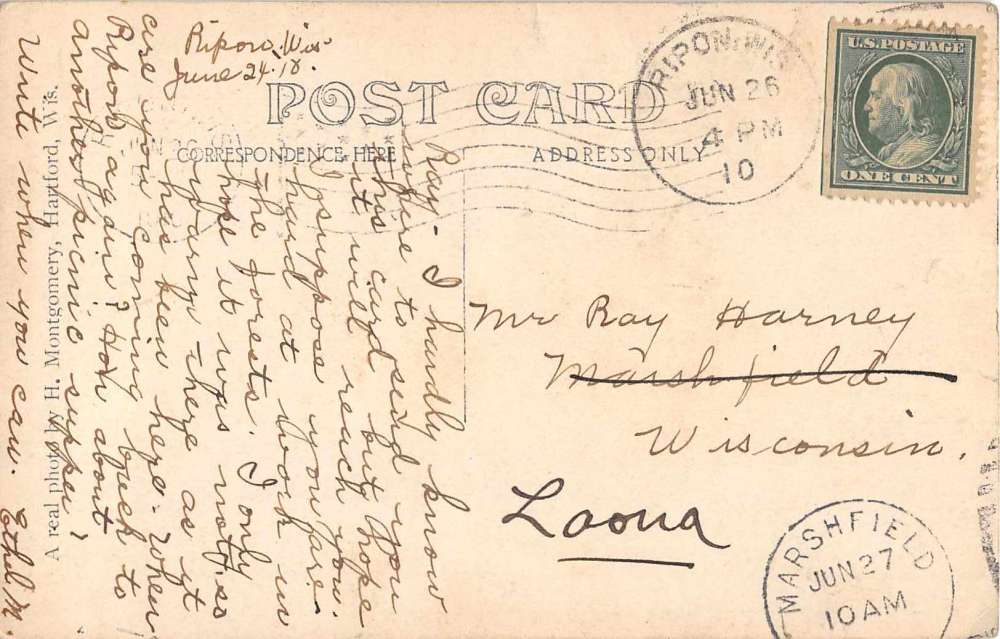 Ripon, Wis.
June 24 '10.
POST CARD
CORRESPONDENCE HERE
ADDRESS ONLY
RIPON, WIS.
JUN 26
4 PM
10
U.S. POSTAGE
ONE CENT
Ray - I hardly know
where to send you
this card but hope
it will reach you.
I suppose you are
hard at work in
the forests. I only
hope it was not as
warm there as it
has been here. When
are you coming back to
Ripon again? How about
another picnic supper?
Write when you can. Ethel M.
Mr Ray Harney
Marshfield
Wisconsin.
Laona
MARSHFIELD
JUN 27
10 AM
A real photo by H. Montgomery, Hartford, Wis.